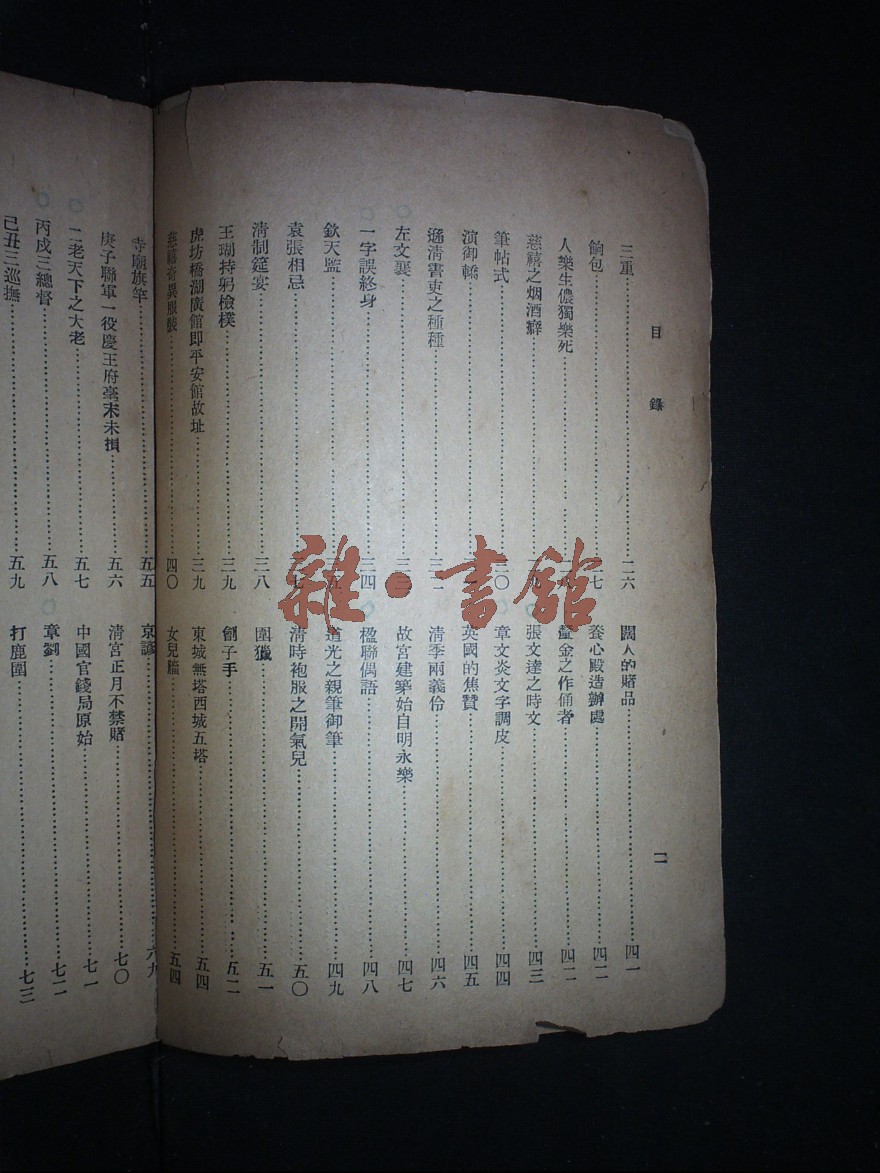 目錄
三重 二六
餉包 七
人樂生儂獨樂死
慈禧之烟酒癖
筆帖式 三〇
演御轎
遜清書吏之種種
左文襄 三三
一字誤終身 三四
欽天監
袁張相忌
清制筵宴 三八
王瑚持躬檢樸 三九
虎坊橋湖廣館即平安館故址 三九
慈禧奇異服裝 四〇
闊人的賭品 四一
養心殿造辦處 四二
釐金之作俑者 四二
張文達之時文 四三
章文炎文字調皮 四四
英國的焦贊 四五
清季兩義伶 四六
故宮建築始自明永樂 四七
楹聯偶語 四八
道光之親筆御筆 四九
清時袍服之開氣兒 五〇
圍獵 五一
劊子手 五二
東城無塔西城五塔 五四
女兒 五四
二
寺廟旗竿 五五
庚子聯軍一役慶王府毫末未損 五六
二老天下之大老 五七
丙戌三總督 五八
己丑三巡撫 五九
京諺 六九
清宮正月不禁賭 七〇
中國官錢局原始 七一
章劉 七二
打鹿圍 七三
雜·書館